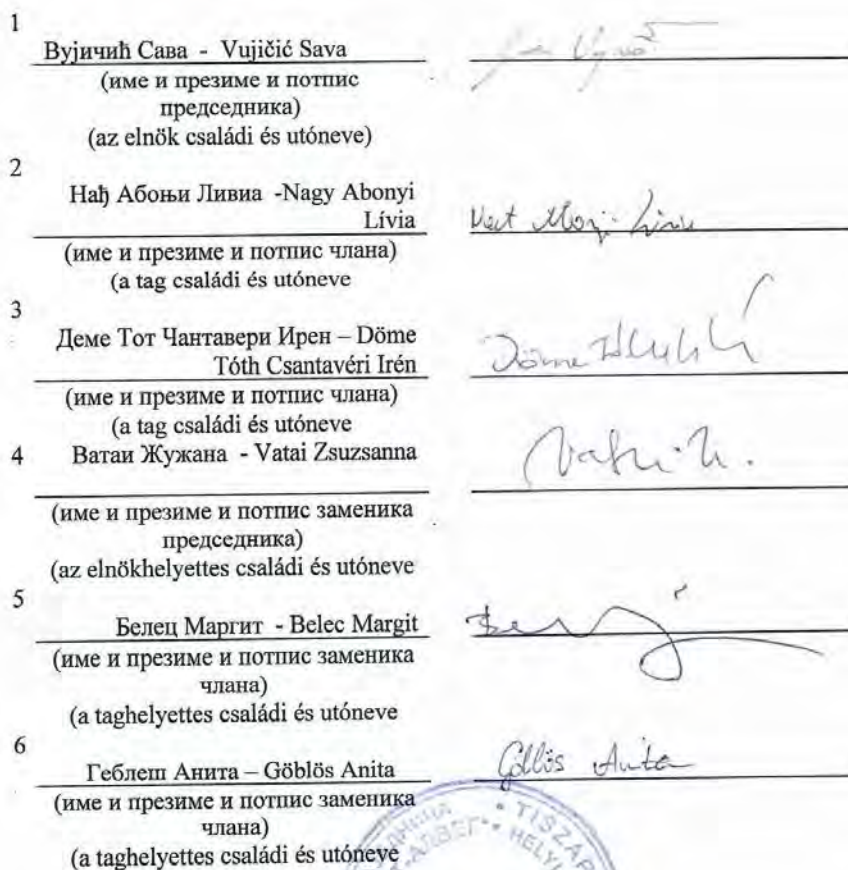 1
Вујичић Сава - Vujičić Sava
(име и презиме и потпис
председника)
(az elnök családi és utóneve)
2
Нађ Абоњи Ливиа -Nagy Abonyi
Lívia
(име и презиме и потпис члана)
(a tag családi és utóneve
3
Деме Тот Чантавери Ирен – Döme
Tóth Csantavéri Irén
Döme
(име и презиме и потпис члана)
(a tag családi és utóneve
4 Ватаи Жужана - Vatai Zsuzsanna
(име и презиме и потпис заменика
председника)
(az elnökhelyettes családi és utóneve
5
Белец Маргит - Belec Margit
(име и презиме и потпис заменика
члана)
(a taghelyettes családi és utóneve
6
Геблеш Анита – Göblös Anita
Göblös Anita
(име и презиме и потпис заменика
члана)
(a taghelyettes családi és utóneve